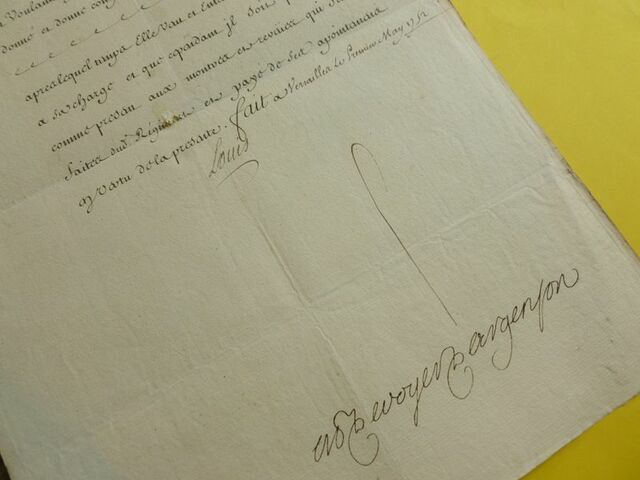 Voulant
donné et donne congé
apres lequel temps Elle Veut et Entend
a sa charge et que cependant jl soit
comme present aux montres et reveües qui
faites dud. Régiment et payé de ses apointemens
en Vertu de la presente. fait a Versailles le Premier May 1752
Louis
M P de voyer d argenson